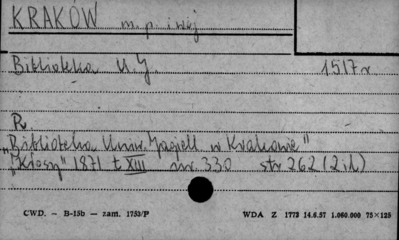 KRAKÓW m. p. i woj
Biblioteka U. J. 1517 r
R
"Biblioteka Uniw. Jagiell. w Krakowie"
"Kłosy" 1871 t XIII nr. 330 str 262 (2 il.)
CWD. — B-15b — zam. 1753/P WDA Z 1773 14.6.57 1.060.000 75×125